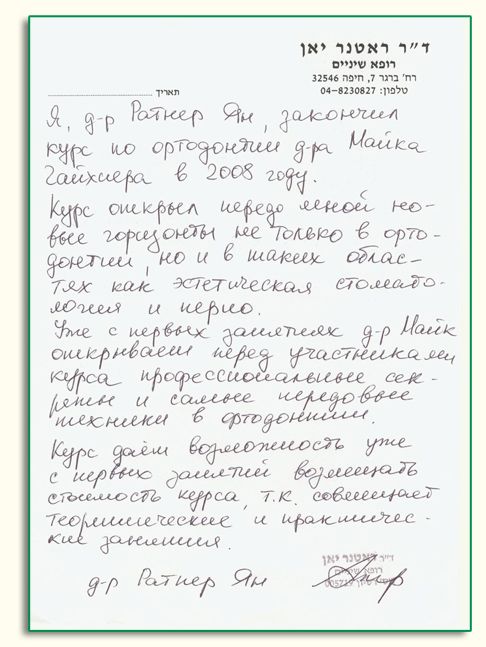 ד״ר ראטנר יאן
רופא שיניים
רח' ברגר 7, חיפה 32546
טלפון: 04-8230827
תאריך
Я, д-р Ратнер Ян, закончил
курс по ортодонтии д-ра Майка
Гайхиера в 2008 году.
Курс открыл передо мной но-
вые горизонты не только в орто-
донтии, но и в таких облас-
тях как эстетическая стомато-
логия и перио.
Уже с первых занятиях д-р Майк
открывает перед участниками
курса профессиональные сек-
реты и самые передовые
техники в ортодонтии.
Курс даёт возможность уже
с первых занятий возмещать
стоимость курса, т.к. совмещает
теоритические и практичес-
кие занятия.
д-р Ратнер Ян
ד״ר ראטנר יאן
רופא שיניים